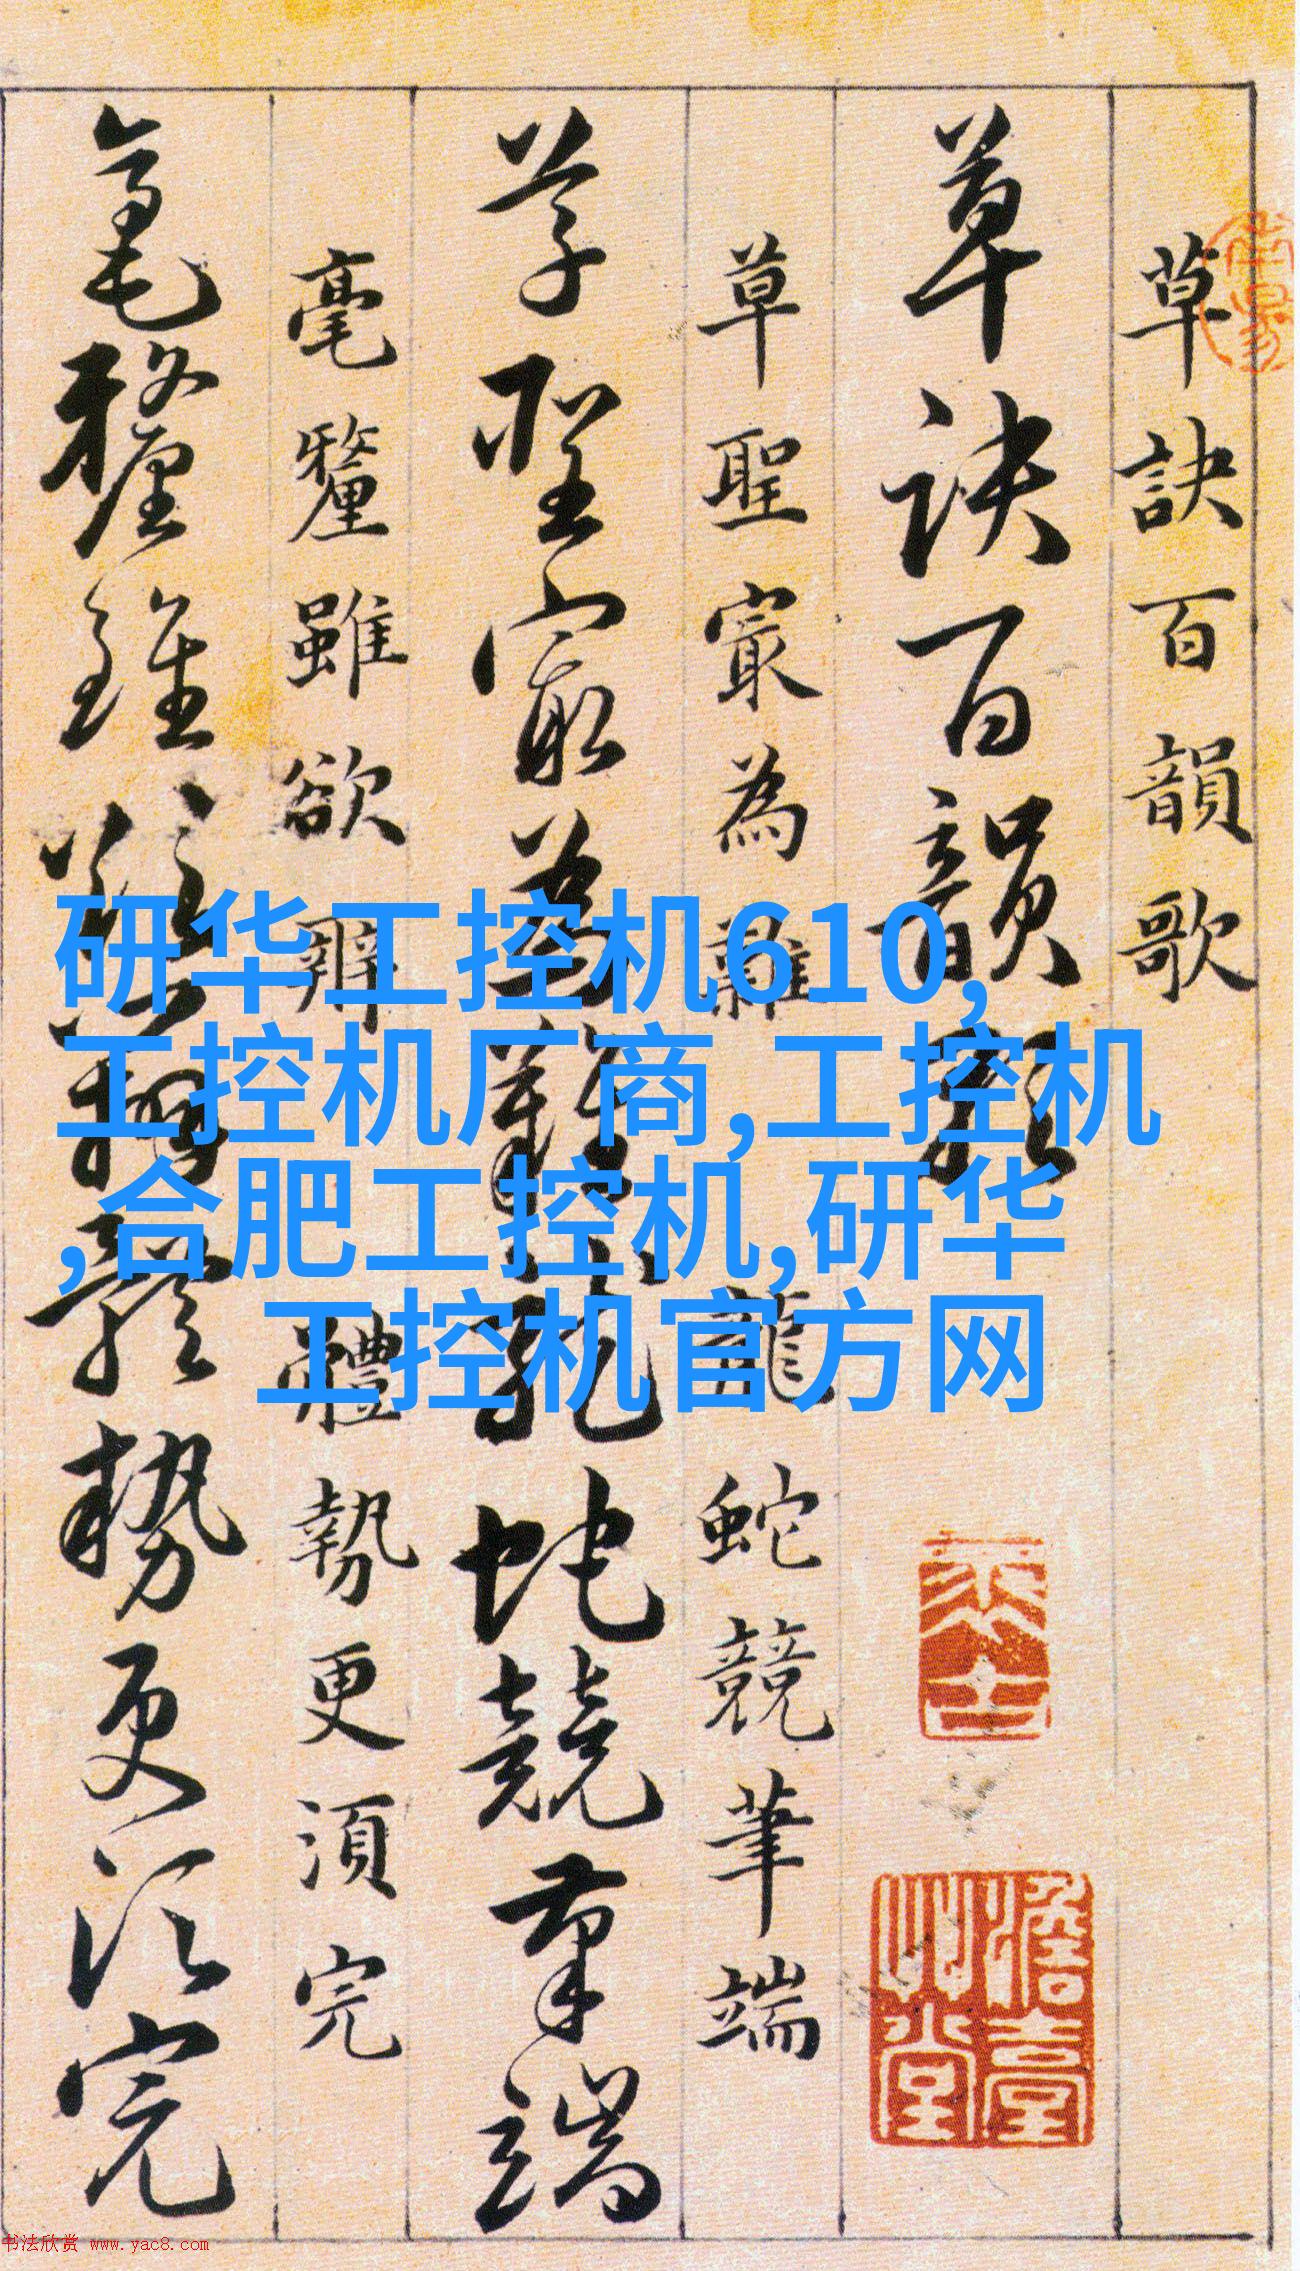 草訣百韻歌
草訣百韻歌
草聖寂為難龍蛇競筆端
草聖寂為難龍蛇競筆端
毫釐雖欲辨體勢更須完
毫釐雖欲辨體勢更須完
研华工控机610,
工控机厂商,工控机
,合肥工控机,研华
工控机官方网
书法欣赏 www.yac8.com